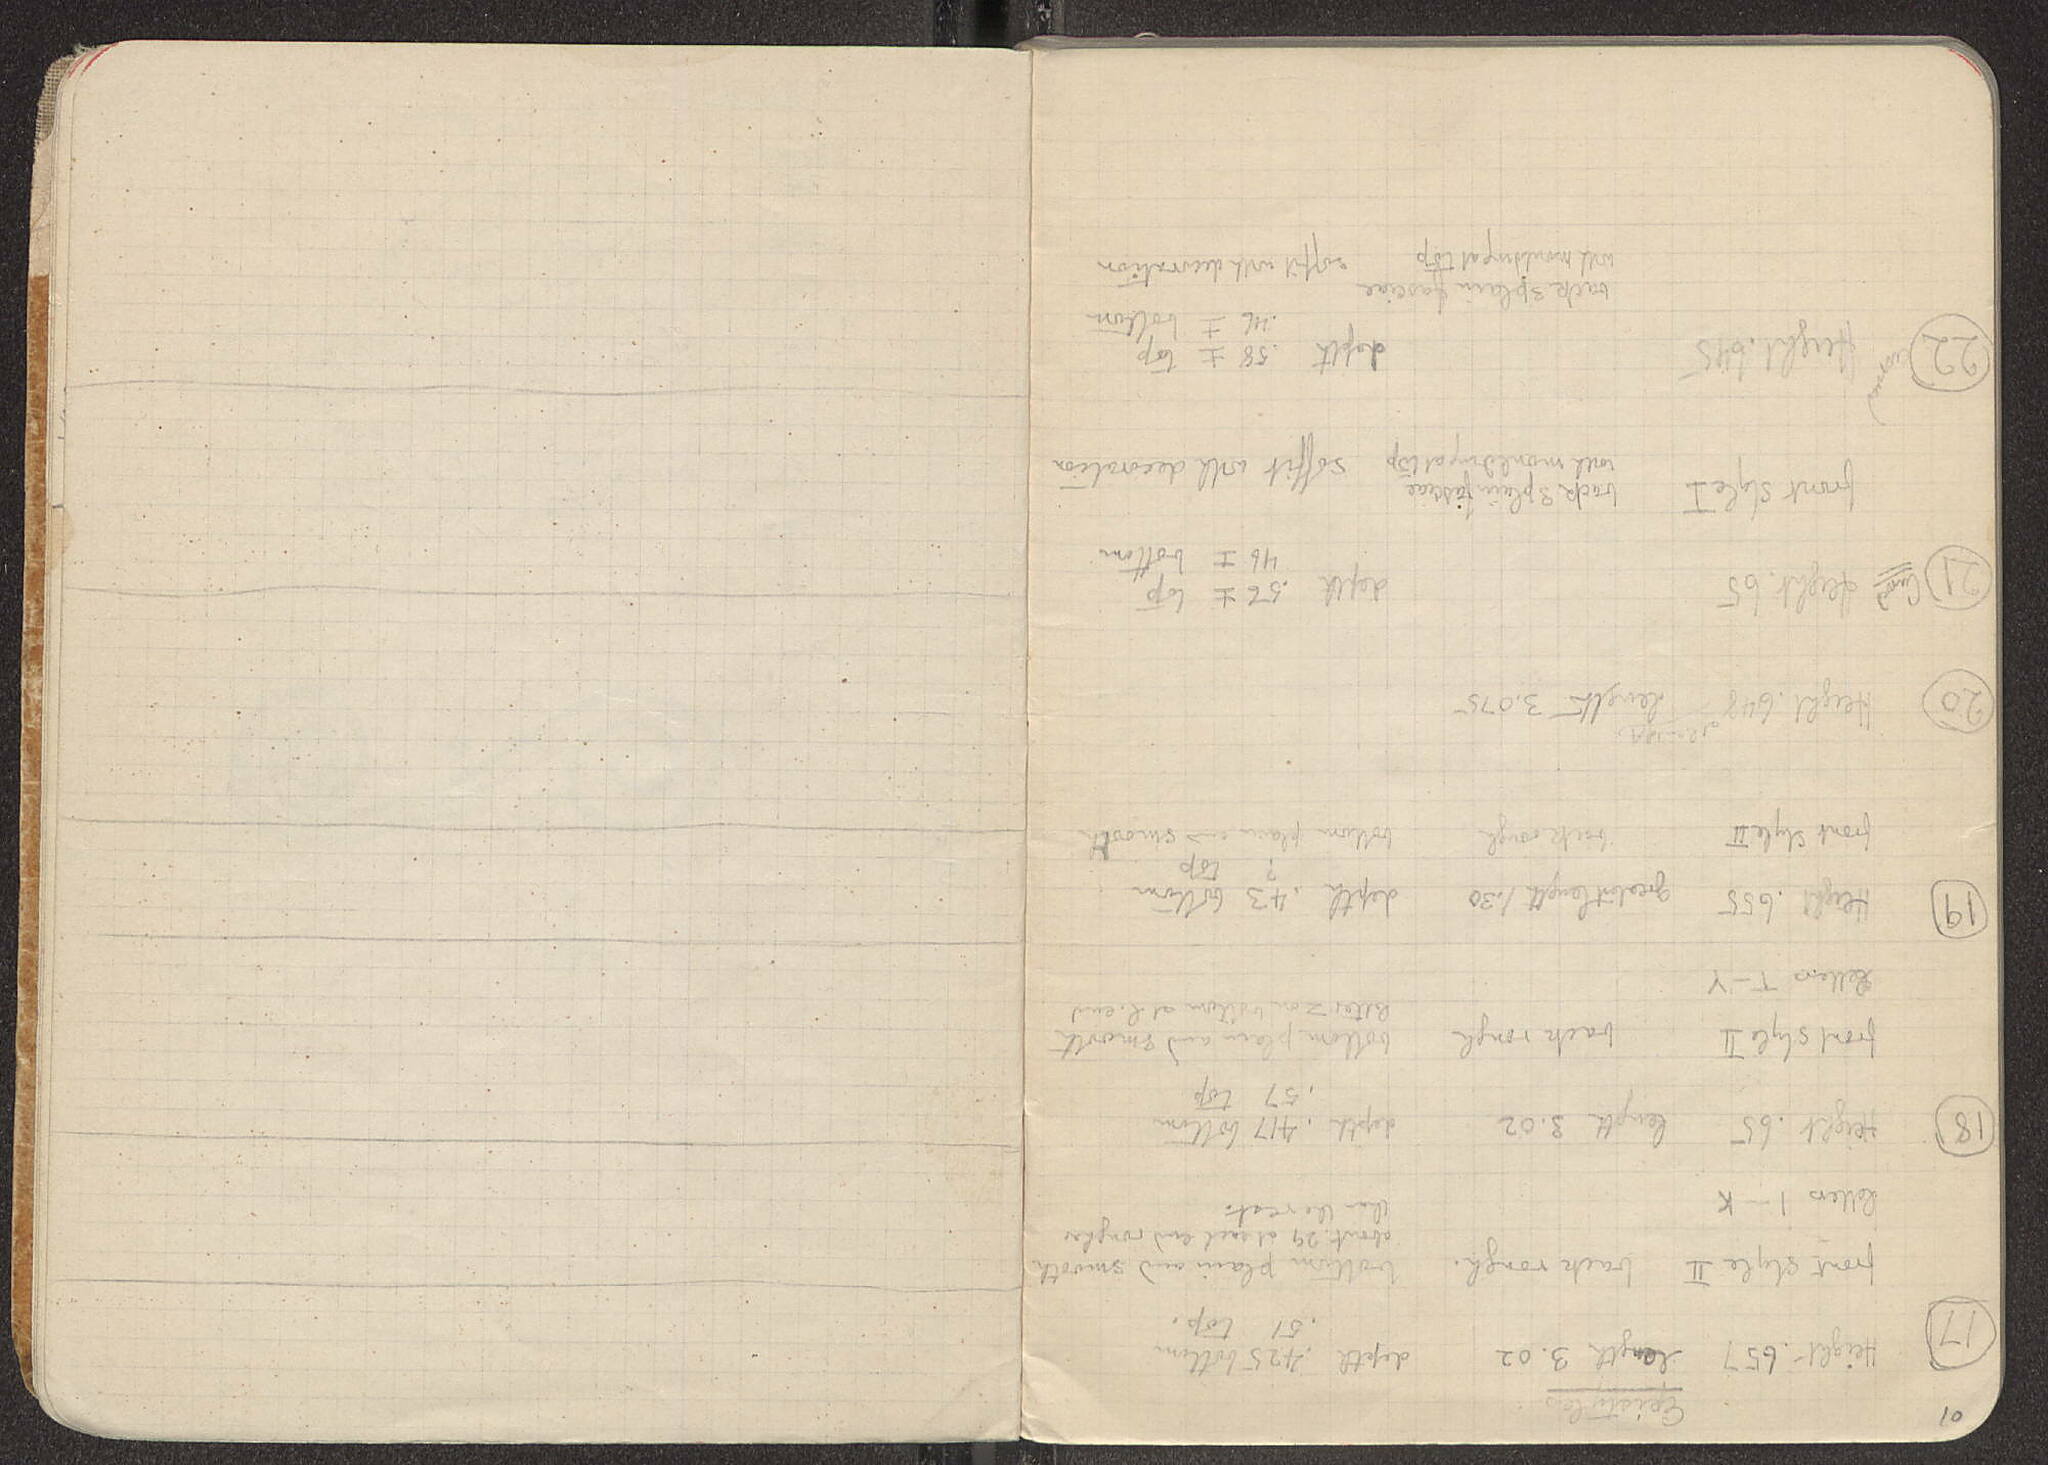 10
Epistyles
17 Height .657 length 3.02 depth .425 bottom
.51 top.
front style II back rough. bottom plain and smooth
about .29 at each end rougher
than the rest.
letters I — K
18 Height .65 length 3.02 depth .417 bottom
.57 top
front style II back rough bottom plain and smooth
letter Z on bottom at l. end
letters T — Y
19 Height .655 greatest length 1.30 depth .43 bottom
? top
front style II back rough bottom plain and smooth
20 Height .648 length 3.075
21 Curved Height .65 depth .56 ± top
46 ± bottom
front style I back 3 plain fasciae
with moulding at top soffit with decoration
22 Height .645 depth .58 ± top
.46 ± bottom
back 3 plain fasciae
with moulding at top soffit with decoration